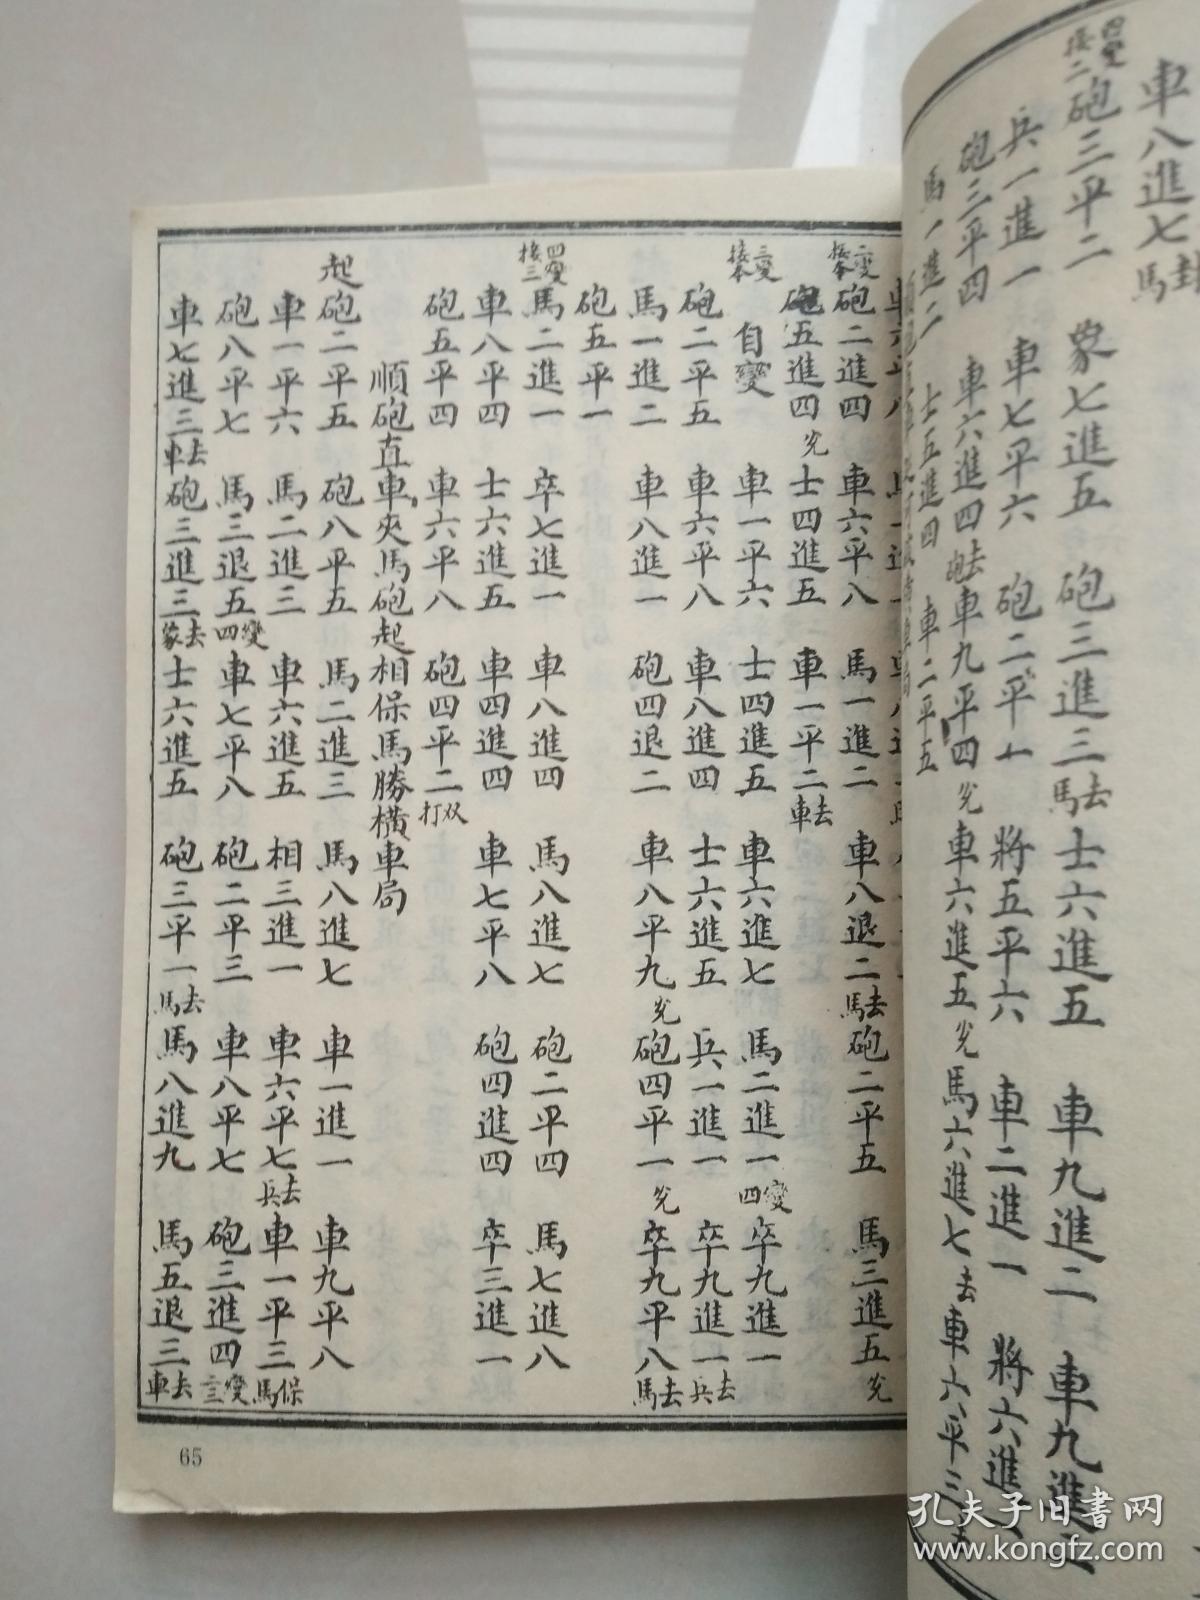 車八進七封馬
四變接二 砲三平二 象七進五 砲三進三去馬 士六進五 車九進二 車九進
兵一進一 車七平六 砲二平一 將五平六 車二進一 將六進
砲三平四 車六進四去砲 車九平四 兌 車六進五 兌 馬六進七 去 車六平三
馬一進二 士五進四 車二平五
二變接本 砲二進四 車六平八 馬一進二 車八退二去馬 砲二平五 馬三進五 兌
砲五進四 兌 士四進五 車一平二去車
三變接本 自變 車一平六 士四進五 車六進七 馬二進一四變 卒九進一
砲二平五 車六平八 車八進四 士六進五 兵一進一 卒九進一去兵
馬一進二 車八進一 砲四退二 車八平九 兌 砲四平一 兌 卒九平八去馬
砲五平一
四變接三 馬二進一 卒七進一 車八進四 馬八進七 砲二平四 馬七進八
車八平四 士六進五 車四進四 車七平八 砲四進四 卒三進一
砲五平四 車六平八 砲四平二双打
順砲直車夾馬砲起相保馬勝橫車局
起 砲二平五 砲八平五 馬二進三 馬八進七 車一進一 車九平八
車一平六 馬二進三 車六進五 相三進一 車六平七去兵 車一平三保馬
砲八平七 馬三退五四變 車七平八 砲二平三 車八平七 砲三進四二三變
車七進三去車 砲三進三去象 士六進五 砲三平一去馬 馬八進九 馬五退三去車
65
孔夫子旧书网
www.kongfz.com